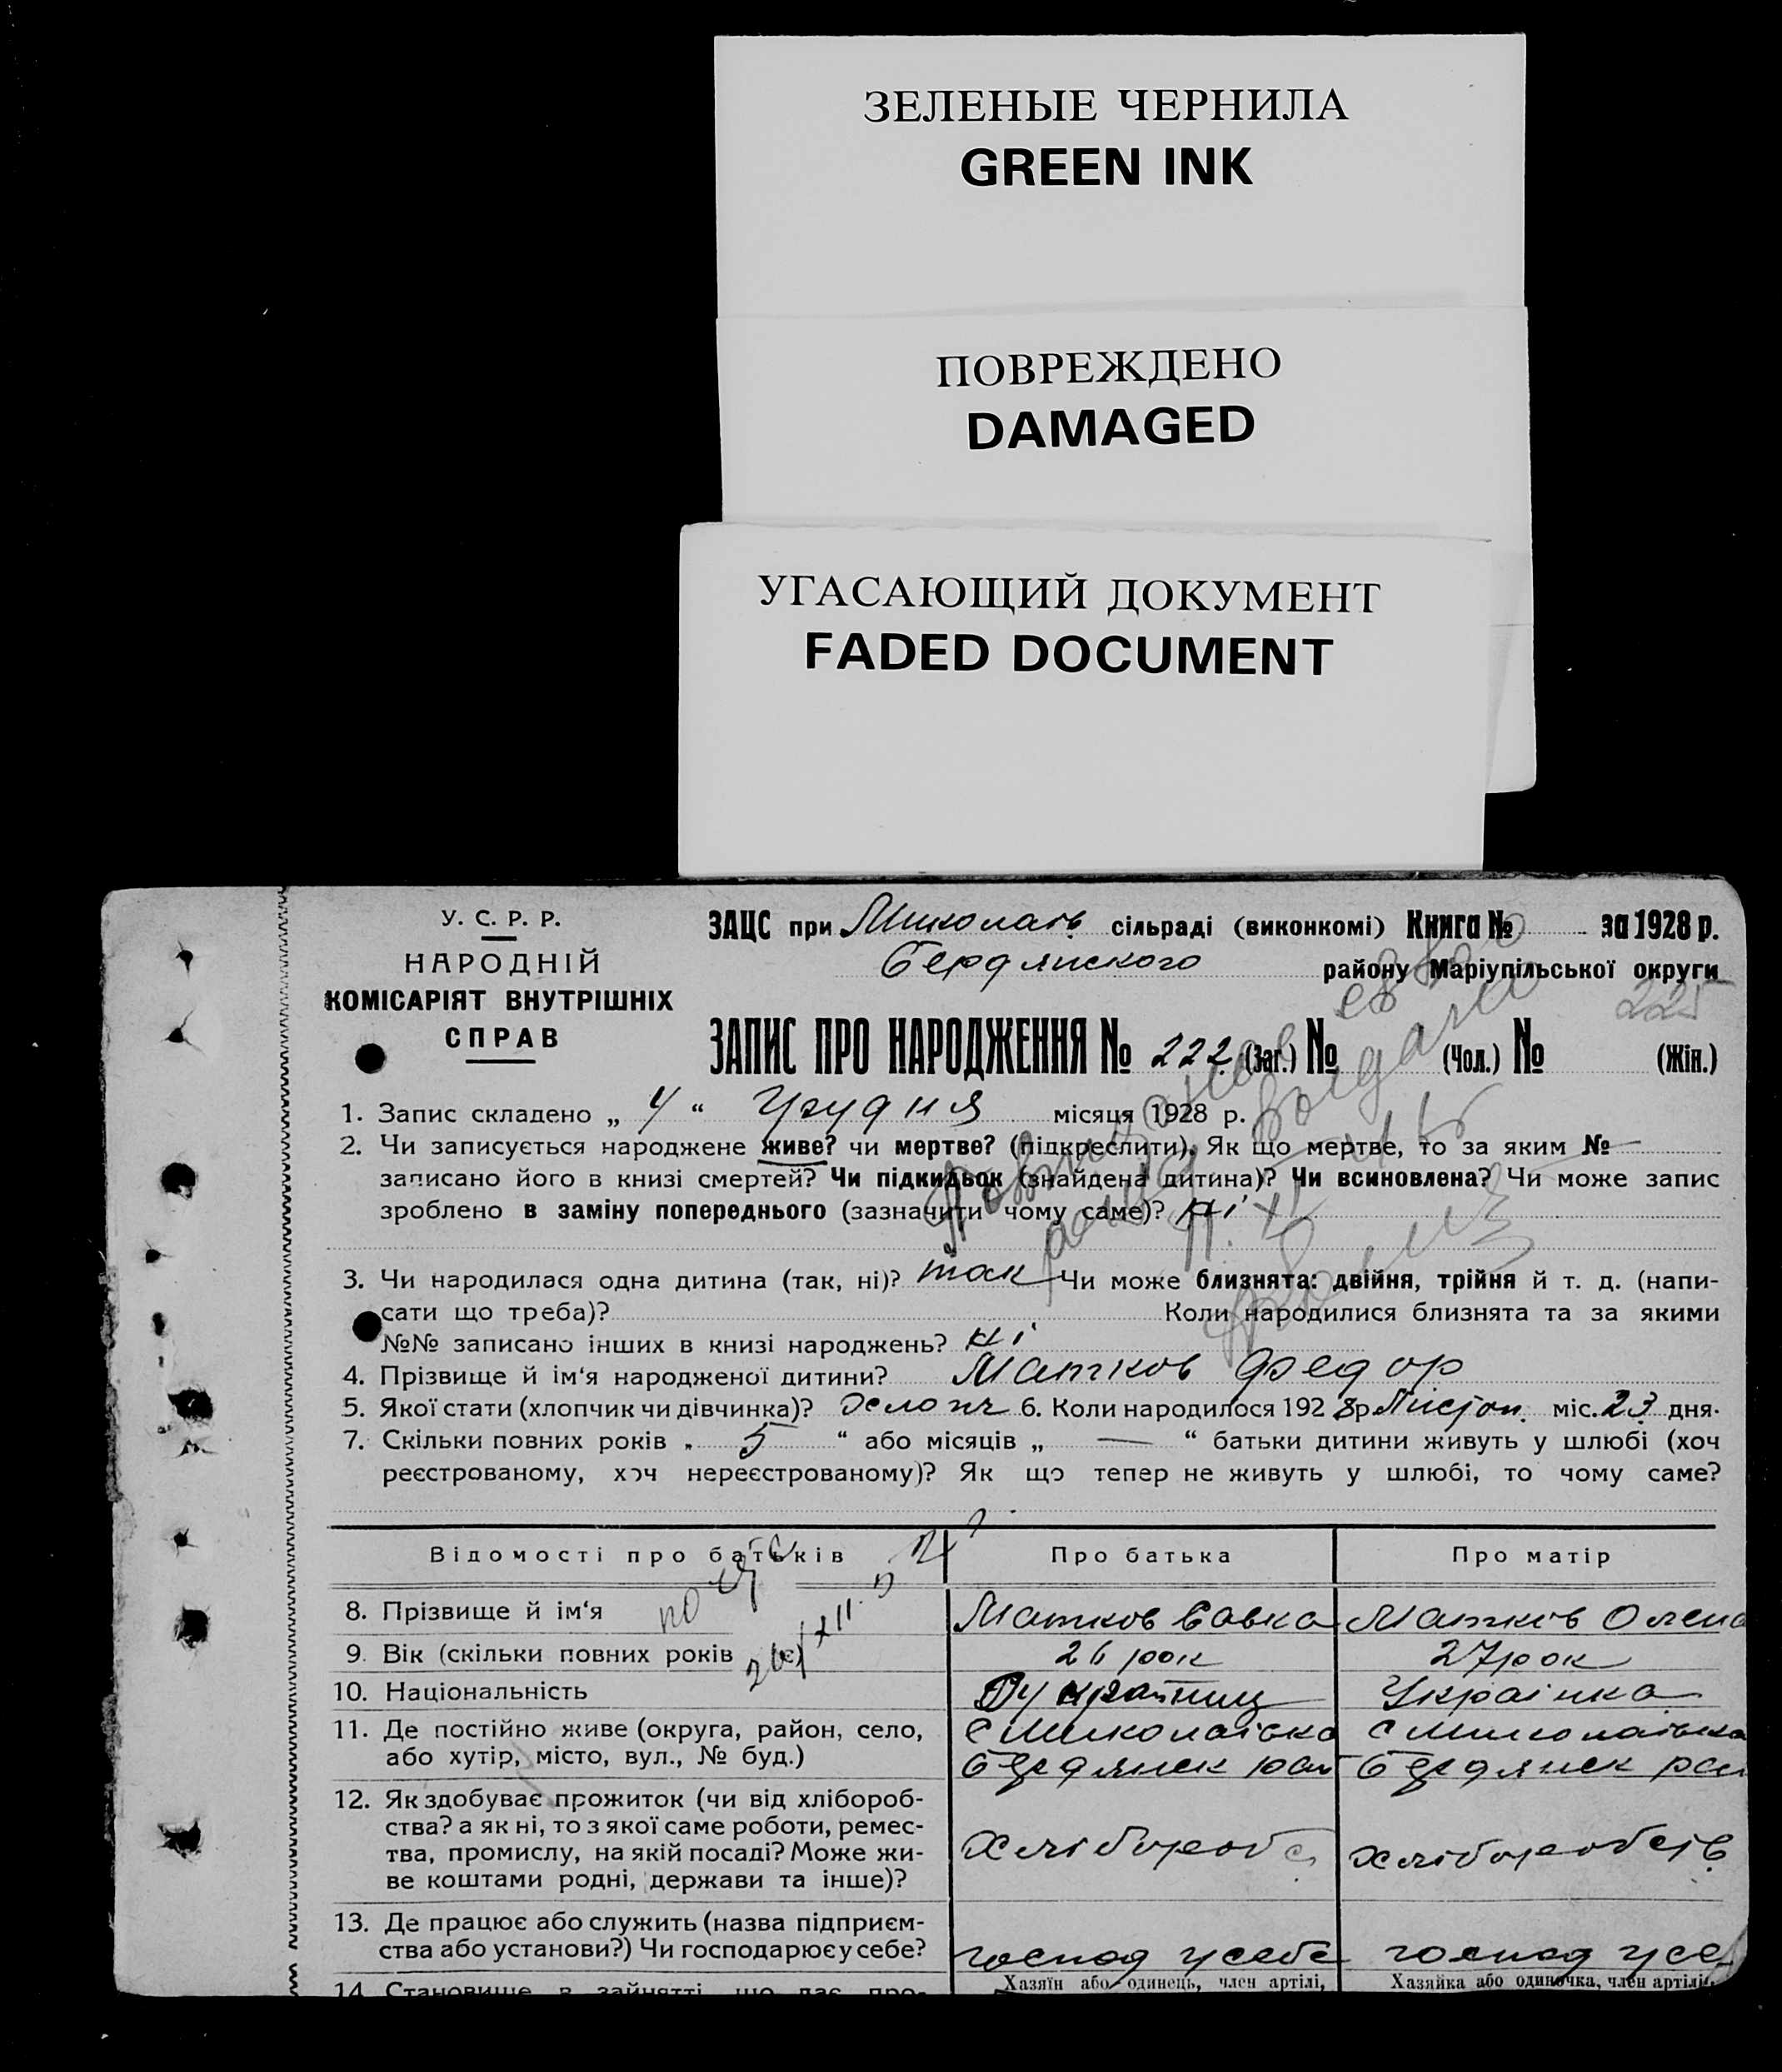 ЗЕЛЕНЫЕ ЧЕРНИЛА
GREEN INK
ПОВРЕЖДЕНО
DAMAGED
УГАСАЮЩИЙ ДОКУМЕНТ
FADED DOCUMENT
У. С. Р. Р.
НАРОДНІЙ
КОМІСАРІЯТ ВНУТРІШНІХ
СПРАВ
ЗАЦС при Миколаїв. сільраді (виконкомі) Книга № за 1928 р.
Бердянського району Маріупільської округи
225
ЗАПИС ПРО НАРОДЖЕННЯ № 222 (Заг.) № (Чол.) № (Жін.)
1. Запис складено „ 4 “ Грудня місяця 1928 р.
2. Чи записується народжене живе? чи мертве? (підкреслити). Як що мертве, то за яким №
записано його в книзі смертей? Чи підкидьок (знайдена дитина)? Чи всиновлена? Чи може запис
зроблено в заміну попереднього (зазначити чому саме)? ні
3. Чи народилася одна дитина (так, ні)? так Чи може близнята: двійня, трійня й т. д. (напи-
сати що треба)? Коли народилися близнята та за якими
№№ записано інших в книзі народжень? ні
4. Прізвище й ім‘я народженої дитини? Матков Федор
5. Якої стати (хлопчик чи дівчинка)? Хлопч 6. Коли народилося 192 8 р Листоп. міс. 23 дня.
7. Скільки повних років „ 5 “ або місяців „ — “ батьки дитини живуть у шлюбі (хоч
реєстрованому, хоч нереєстрованому)? Як що тепер не живуть у шлюбі, то чому саме?
Відомості про батьків Про батька Про матір
8. Прізвище й ім‘я Матков Савка Матков Олена
9. Вік (скільки повних років 26 рок 27 рок
10. Національність Українка
11. Де постійно живе (округа, район, село, с Миколаївка с Миколаївка
або хутір, місто, вул., № буд.) Бердянск рай Бердянск рай
12. Як здобуває прожиток (чи від хлібороб-
ства? а як ні, то з якої саме роботи, ремес-
тва, промислу, на якій посаді? Може жи- Хлібороб с. хліборобств
ве коштами родні, держави та інше)?
13. Де працює або служить (назва підприєм-
ства або установи?) Чи господарює у себе? господ у себе господ у се
Хазяїн або одинець, член артілі, Хазяйка або одиночка, член артілі,
14. Становище в зайнятті, що дає про-